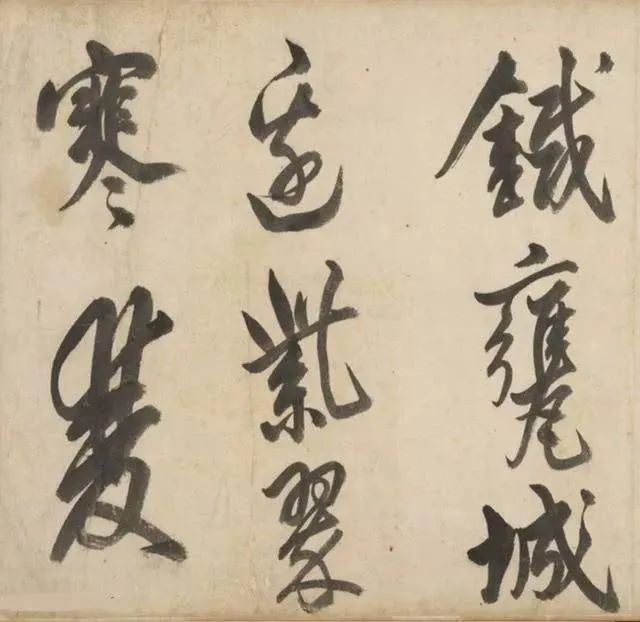 鐵甕城
邊紫翠
寒